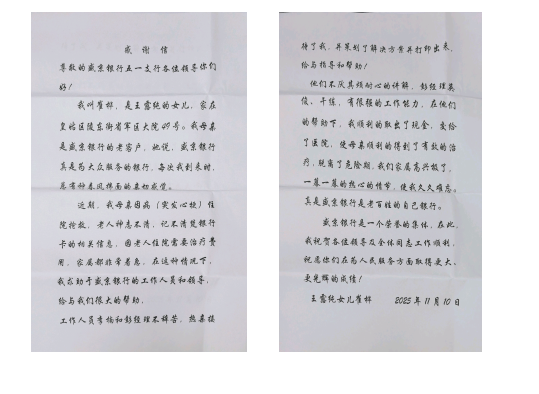 感谢信
尊敬的盛京银行五一支行各位领导你们
好！
我叫崔梓，是王露纯的女儿，家在
皇姑区陵东街省军区大院49号。我母亲
是盛京银行的老客户，她说，盛京银行
真是为大众服务的银行，每次我到来时，
总有种春风拂面的亲切感觉。
近期，我母亲因病（突发心梗）住
院抢救，老人神志不清，记不清楚银行
卡的相关信息，因老人住院需要治疗费
用，家属都非常着急，在这种情况下，
我求助于盛京银行的工作人员和领导，
给与我们很大的帮助，
工作人员李楠和彭经理不辞苦，热亲接
待了我，并策划了解决方案并打印出来，
给与指导和帮助！
他们不厌其烦耐心的讲解，彭经理英
俊、干练，有很强的工作能力，在他们
的帮助下，我顺利的取出了现金，交给
了医院，使母亲顺利的得到了有效的治
疗，脱离了危险期，我们家属高兴极了，
一幕一幕的热心的情节，使我久久难忘。
真是盛京银行是老百姓的自己银行。
盛京银行是一个荣誉的集体，在此，
我祝贺各位领导及全体同志工作顺利，
祝愿你们在为人民服务方面取得更大、
更光辉的成绩！
王露纯女儿崔梓 2023年11月10日